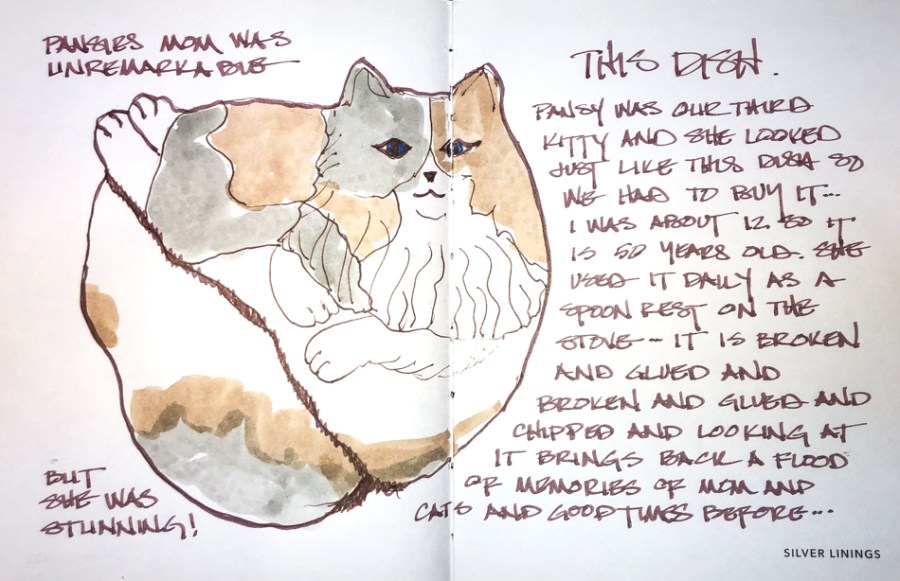 PANSIES MOM WAS
UNREMARKABLE
BUT
SHE WAS
STUNNING!
THIS DISH.
PANSY WAS OUR THIRD
KITTY AND SHE LOOKED
JUST LIKE THIS DISH SO
WE HAD TO BUY IT...
I WAS ABOUT 12. SO IT
IS 50 YEARS OLD. SHE
USED IT DAILY AS A
SPOON REST ON THE
STOVE ~ IT IS BROKEN
AND GLUED AND
BROKEN AND GLUED AND
CHIPPED AND LOOKING AT
IT BRINGS BACK A FLOOD
OF MEMORIES OF MOM AND
CATS AND GOOD TIMES BEFORE...
SILVER LININGS